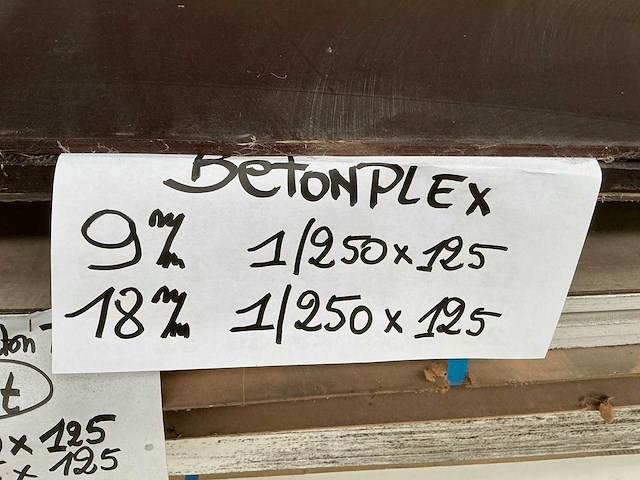 BetonPLEX
9 m/m 1/250 x 125
18 m/m 1/250 x 125
x 125
x 125